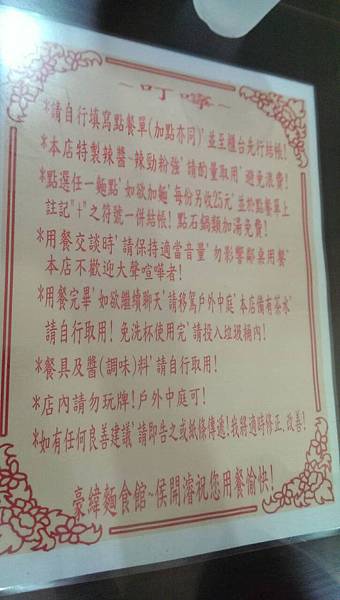 ~叮嚀~
*請自行填寫點餐單(加點亦同)，並至櫃台先行結帳!
*本店特製辣醬-辣勁粉強，請酌量取用，避免浪費!
*點選任一麵點，如欲加麵，每份另收25元，並於點餐單上
註記"+"之符號一併結帳! 點石鍋類加湯免費!
*用餐交談時，請保持適當音量，勿影響鄰桌用餐，
本店不歡迎大聲喧嘩者!
*用餐完畢，如欲繼續聊天，請移駕戶外中庭，本店備有茶水，
請自行取用! 免洗杯使用完，請投入垃圾桶內!
*餐具及醬(調味)料，請自行取用!
*店內請勿玩牌!戶外中庭可!
*如有任何良善建議，請即告之或紙條傳遞!我將適時修正.改善!
豪緯麵食館~侯開濬祝您用餐愉快!